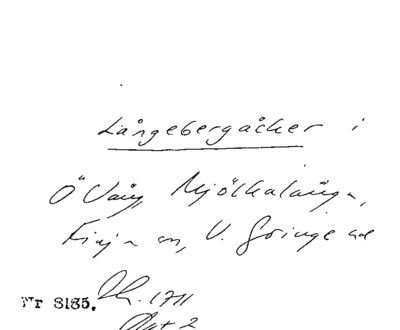 Långebergaåker i
Ö Vång, Mjölkalånga,
Finja sn, V. Göinge hd
Nr 8185.
1711
Akt 2